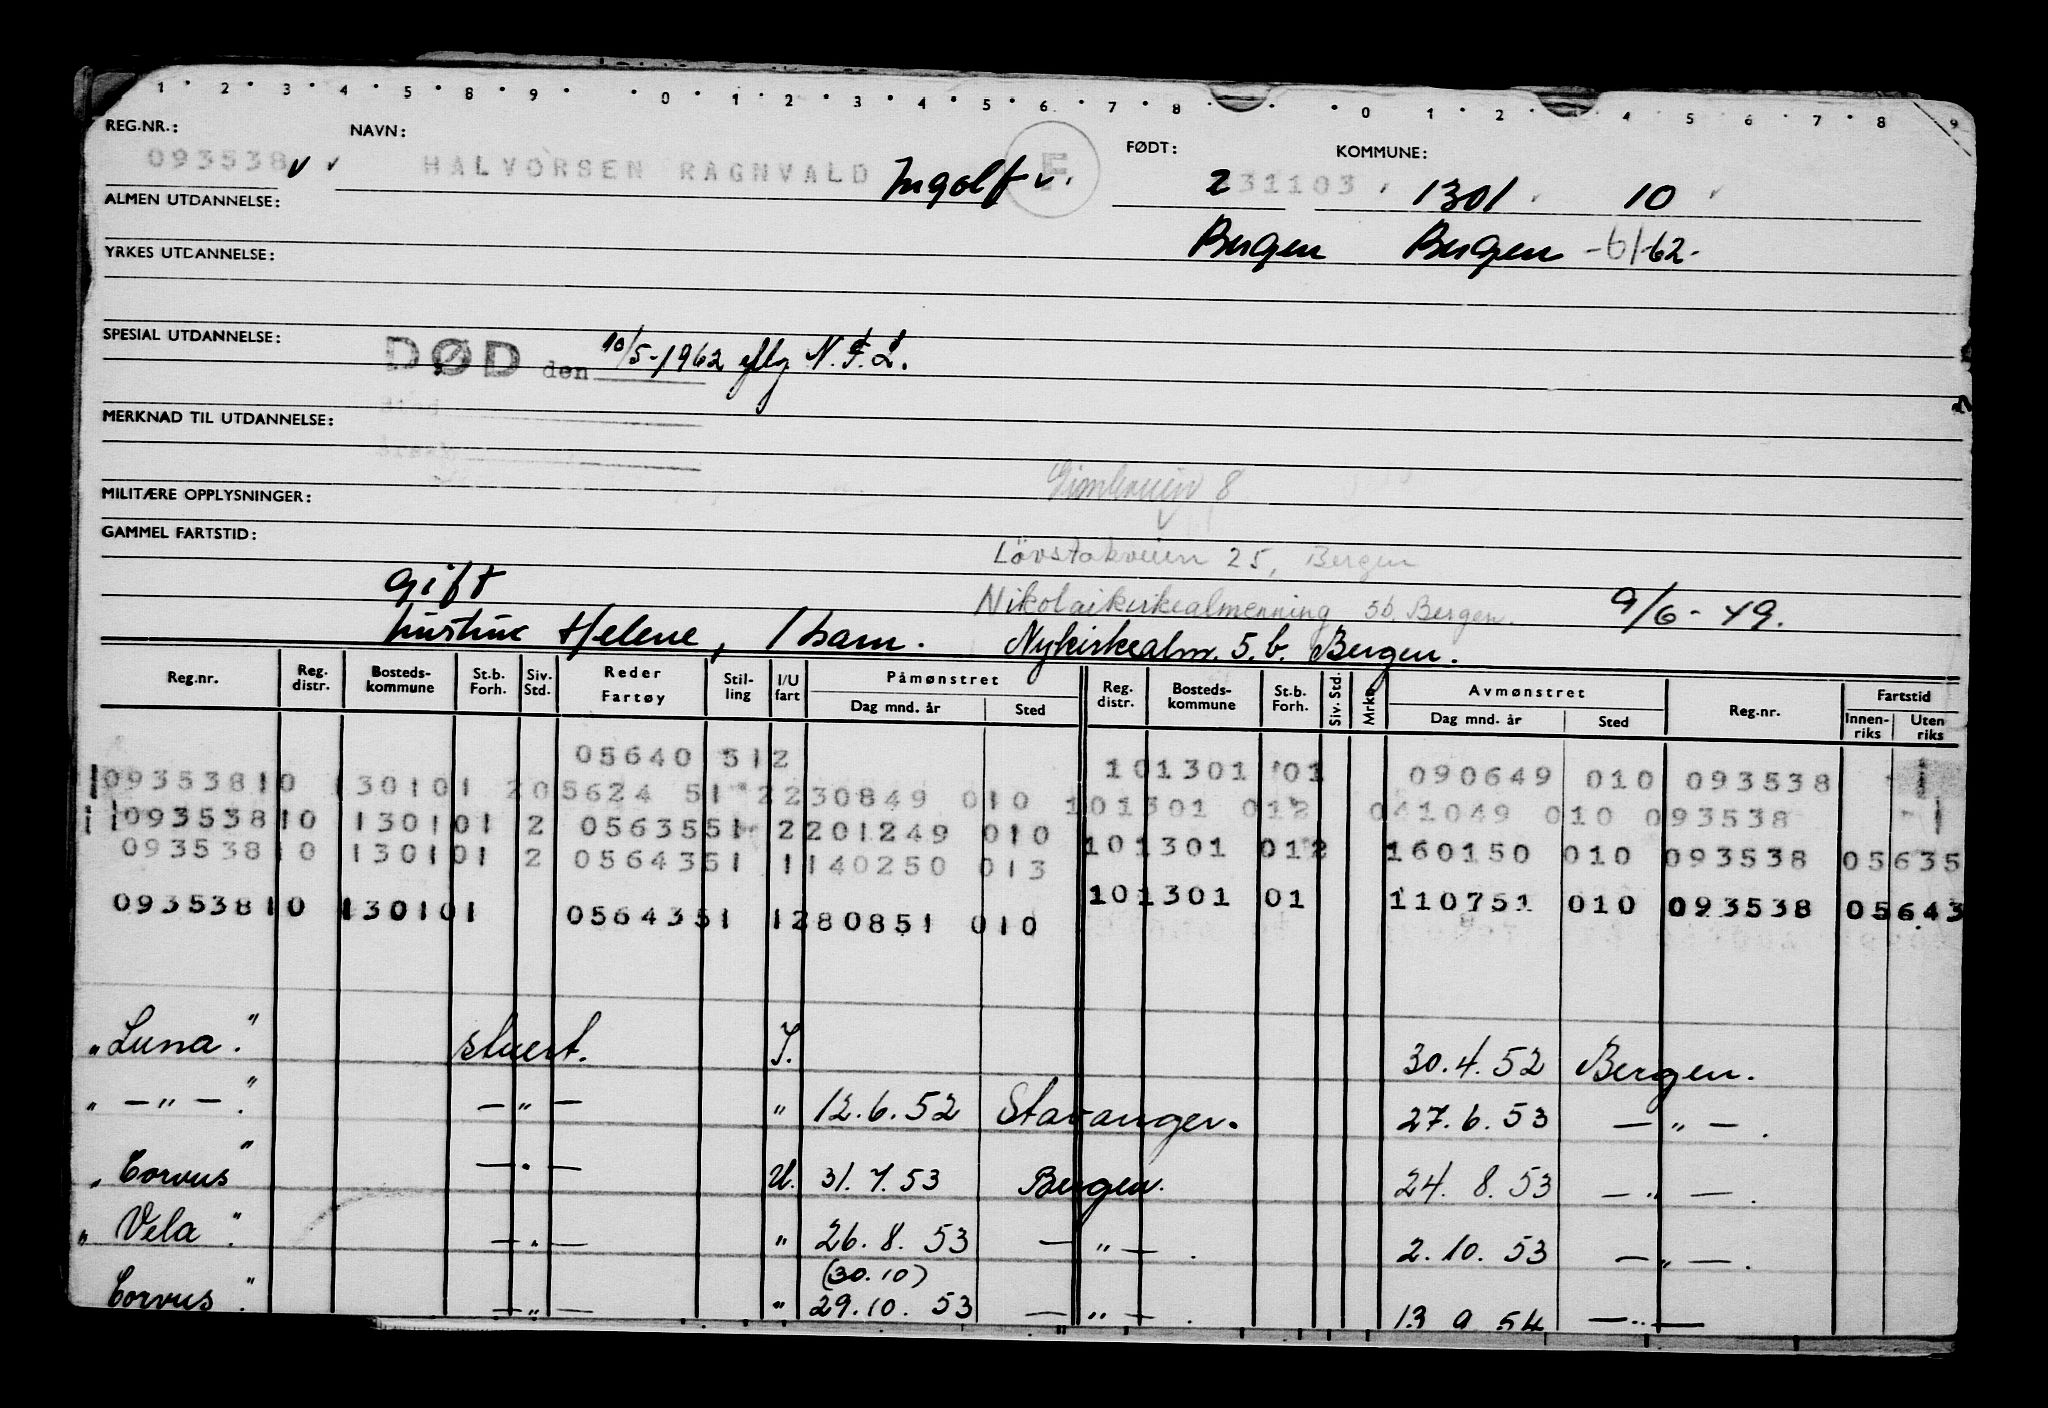 1 2 3 4 5 8 9 0 1 2 3 4 5 6 7 8 0 1 2 4 5 6 7 8 9
REG.NR.: NAVN: FØDT: KOMMUNE:
093538 v v HALVORSEN RAGNVALD Ingolf v. F 231103 1301 10
ALMEN UTDANNELSE:
Bergen Bergen -6/62-
YRKES UTDANNELSE:
SPESIAL UTDANNELSE:
DØD den 10/5-1962 iflg N.F.L.
MERKNAD TIL UTDANNELSE:
MILITÆRE OPPLYSNINGER: 8
GAMMEL FARTSTID:
Lövstakveien 25, Bergen
gift Nikolaikirkealmenning 5b, Bergen. 9/6-49.
hustru Helene, 1 barn. Nykirkealm. 5.b. Bergen.
Reg.nr. Reg. distr. Bosteds- kommune St.b. Forh. Siv. Std. Reder Fartøy Stil- ling I/U fart Påmønstret Dag mnd. år Sted Reg. distr. Bosteds- kommune St.b. Forh. Siv. Std. Mrk. Avmønstret Dag mnd. år Sted Reg.nr. Fartstid Innen- riks Uten riks
05640 512 101301 01 090649 010 093538
09353810 130101 205624 51 2230849 010 101301 012 041049 010 093538
09353810 130101 2 0563551 2201249 010 101301 012 160150 010 093538 05635
09353810 130101 2 0564351 1140250 013 101301 01 110751 010 093538 05643
09353810 130101 0564351 1280851 010
"Luna". stuert. I. 30.4.52 Bergen.
" — " — ". — " — " 12.6.52 Stavanger. 27.6.53 — " — .
"Corvus" — " — U. 31.7.53 Bergen. 24.8.53 — " — .
"Vela". — " — " 26.8.53 — " — . 2.10.53 — " — .
(30.10)
Corvus". — " — " 29.10.53 — " — . 13 9 54 — " —